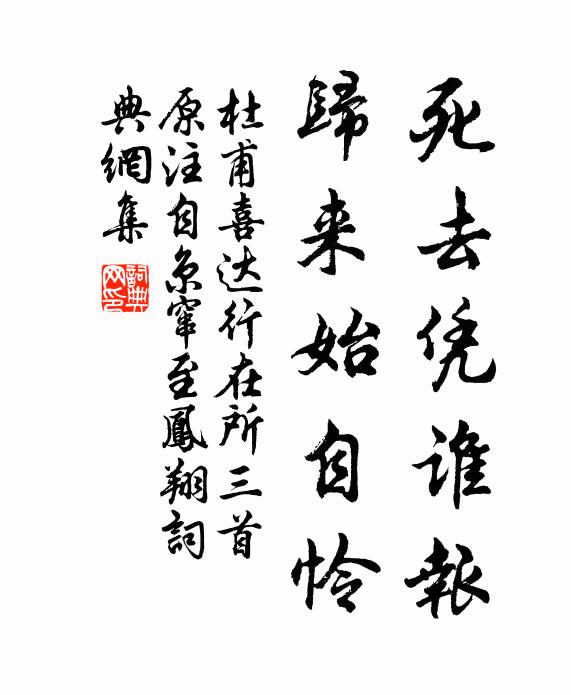 死去凭谁報
歸来始自怜
杜甫喜达行在所三首
原注自京窜至鳳翔詞
典網集
詞典网印